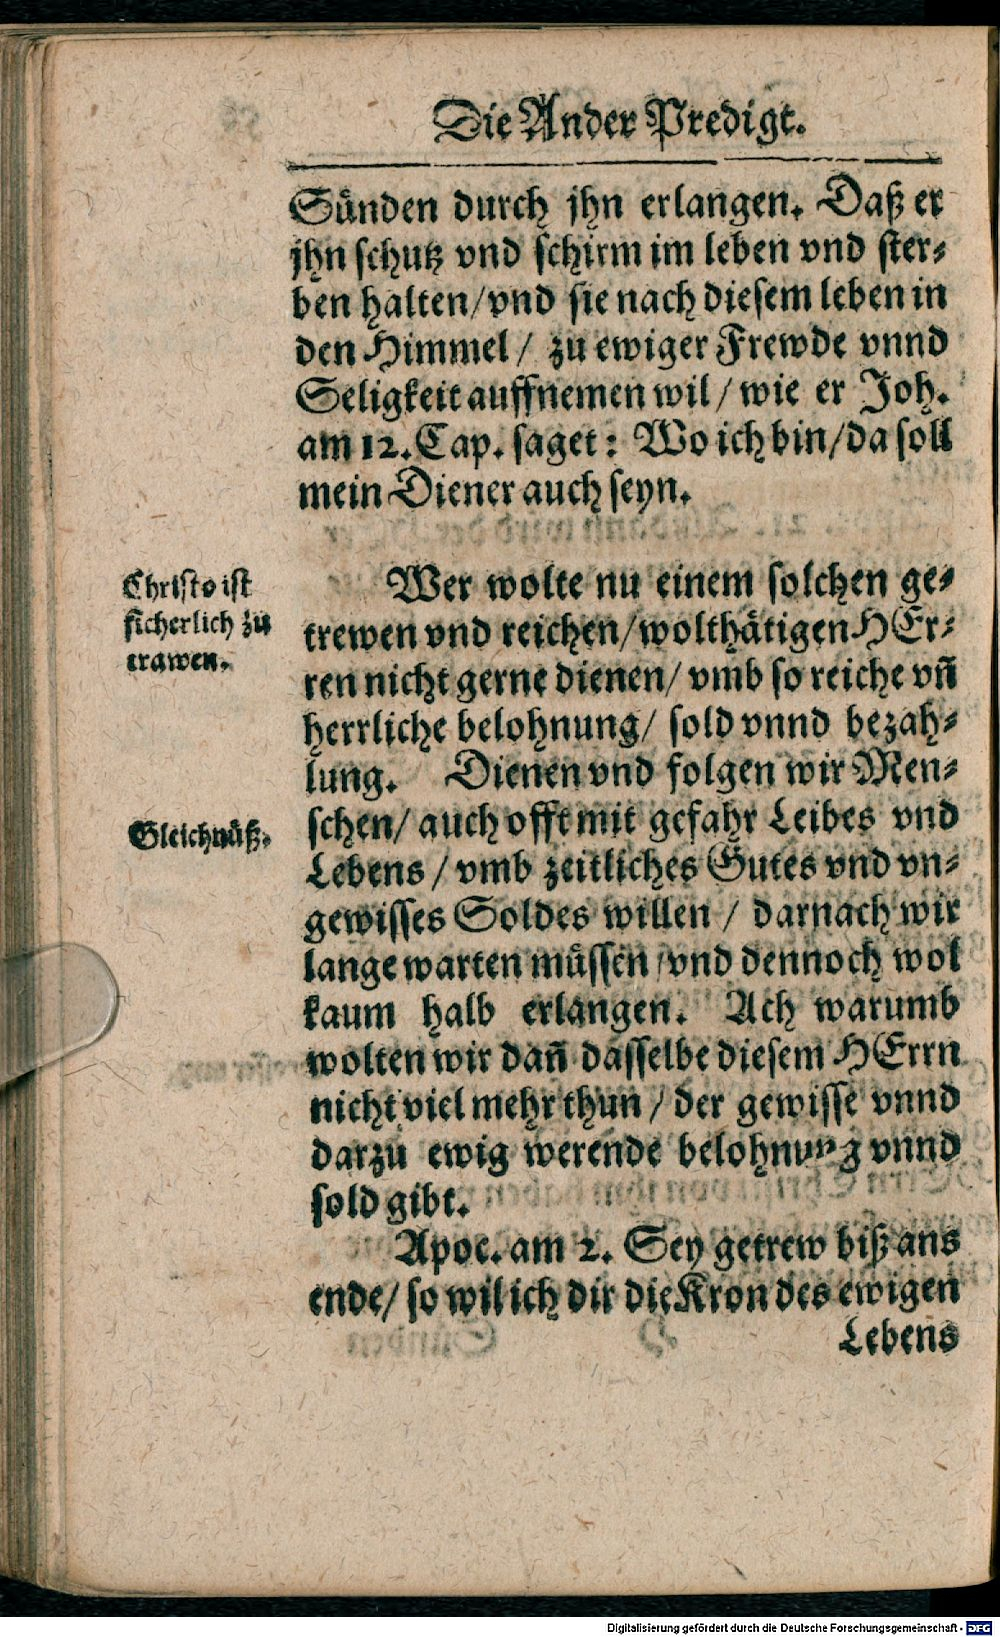 Die Ander Predigt.
Sünden durch jhn erlangen. Daß er
jhn schutz vnd schirm im leben vnd ster⸗
ben halten/vnd sie nach diesem leben in
den Himmel / zu ewiger Frewde vnnd
Seligkeit auffnemen wil / wie er Joh.
am 12. Cap. saget: Wo ich bin/da soll
mein Diener auch seyn.
Christo ist
sicherlich zu
trawen.
Wer wolte nu einem solchen ge⸗
trewen vnd reichen/wolthätigen HEr⸗
ren nicht gerne dienen/ vmb so reiche vñ
herrliche belohnung/ sold vnnd bezah⸗
lung. Dienen vnd folgen wir Men⸗
Gleichnüß.
schen/ auch offt mit gefahr Leibes vnd
Lebens / vmb zeitliches Gutes vnd vn⸗
gewisses Soldes willen / darnach wir
lange warten müssen/vnd dennoch wol
kaum halb erlangen. Ach warumb
wolten wir dañ dasselbe diesem HErrn
nicht viel mehr thun / der gewisse vnnd
darzu ewig werende belohnung vnnd
sold gibt.
Apoc. am 2. Sey getrew biß ans
ende/ so wil ich dir die Kron des ewigen
Lebens
Digitalisierung gefördert durch die Deutsche Forschungsgemeinschaft - DFG